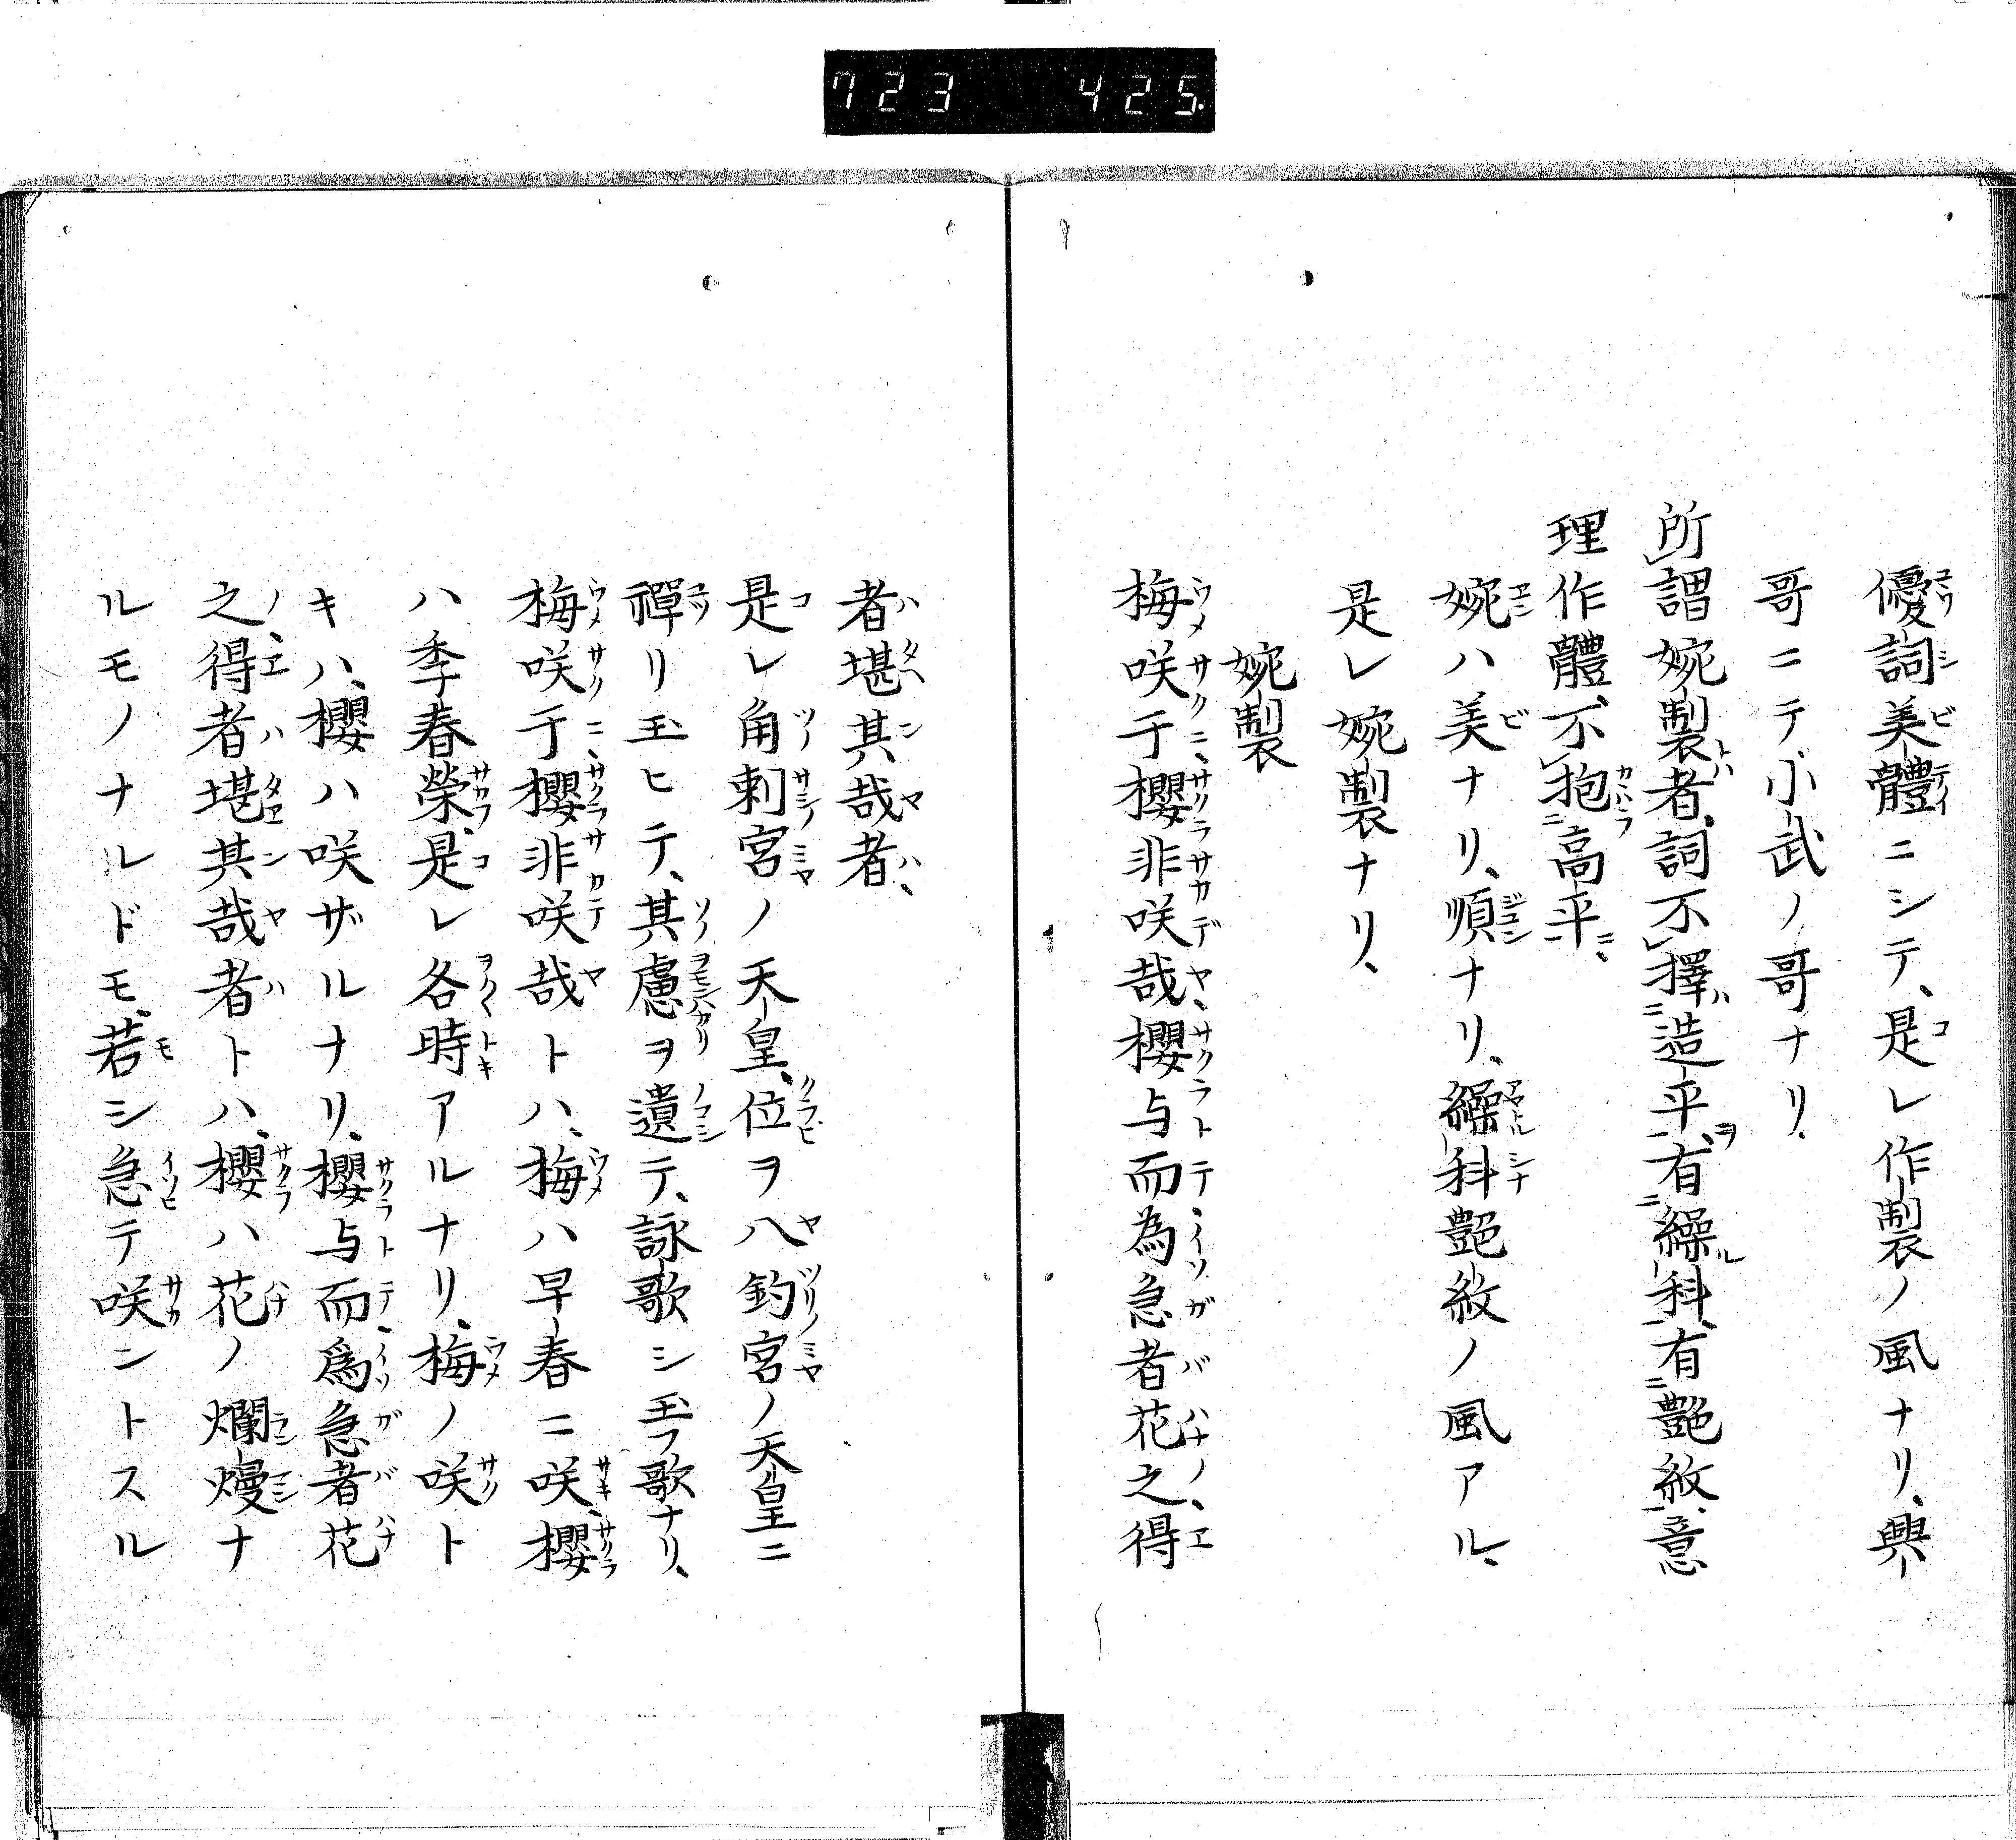 723 425
優詞美體ニシテ、是レ作製ノ風ナリ、興
哥ニテ小武ノ哥ナリ、
所謂婉製者、詞不擇造平、有繰科、有艶敘、意
理作體、不抱高平、
婉ハ美ナリ、順ナリ、繰科艶敘ノ風アル、
是レ婉製ナリ、
婉製
梅咲于櫻非咲哉櫻与而為急者花之得
者堪其哉者、
是レ角刺宮ノ天皇、位ヲ八釣宮ノ天皇ニ
禪リ玉ヒテ、其慮ヲ遺テ、詠歌シ玉フ歌ナリ、
梅咲于櫻非咲哉トハ、梅ハ早春ニ咲、櫻
ハ季春榮、是レ各時アルナリ、梅ノ咲ト
キハ、櫻ハ咲ザルナリ、櫻与而爲急者花
之得者堪其哉者トハ、櫻ハ花ノ爛熳ナ
ルモノナルドモ、若シ急テ咲ントスル